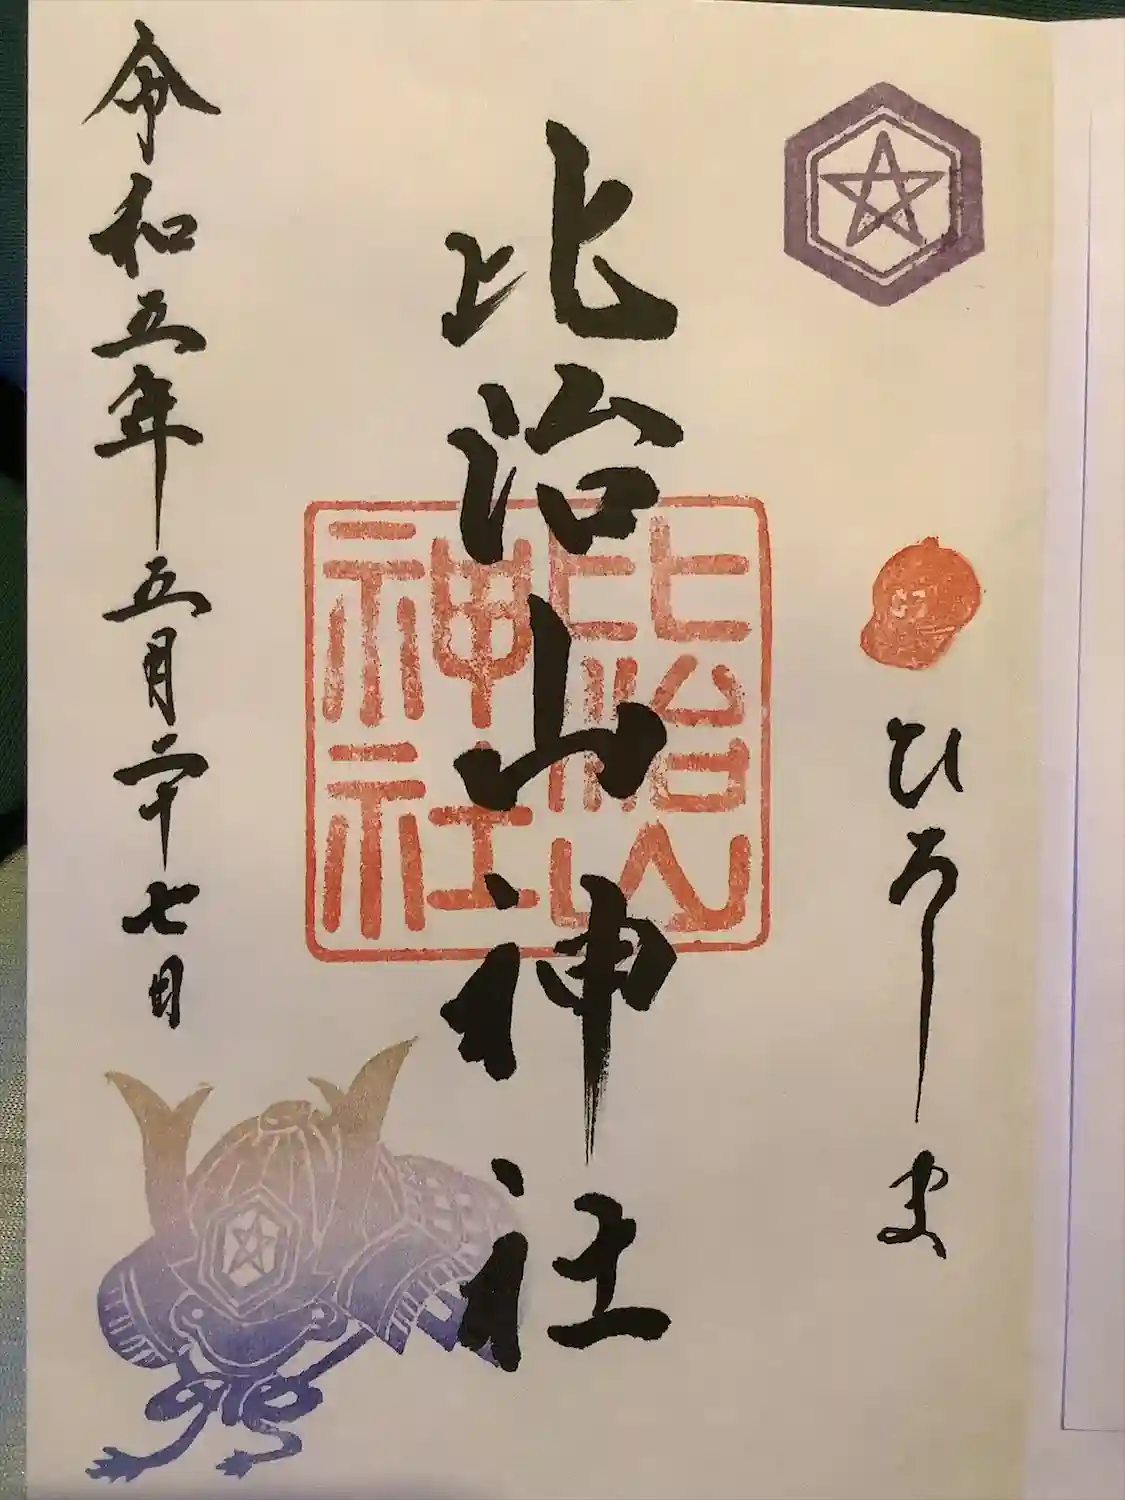 ひろしま
比治山神社
比治山神社
令和五年五月二十七日